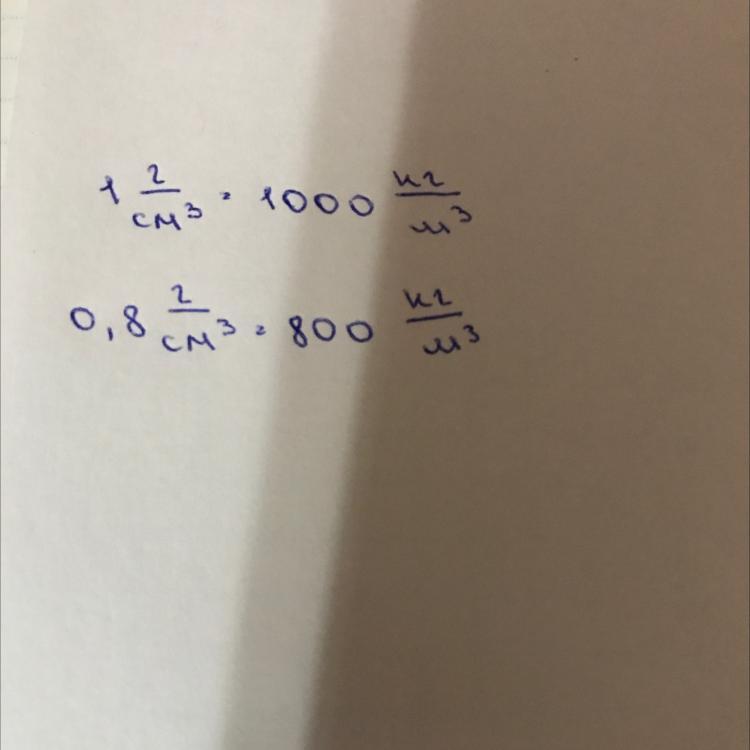 1 г/см³ = 1000 кг/м³
0,8 г/см³ = 800 кг/м³